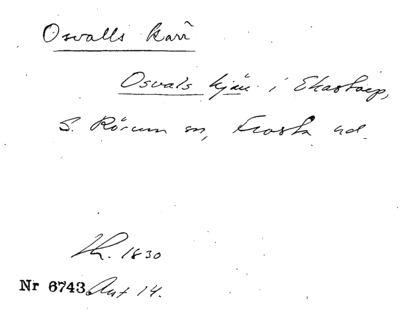 Osvalls kärr
Osvals kjär i Ekastorp,
S. Rörum sn, Frosta hd.
Lh. 1830
Nr 6743 Ant 14.